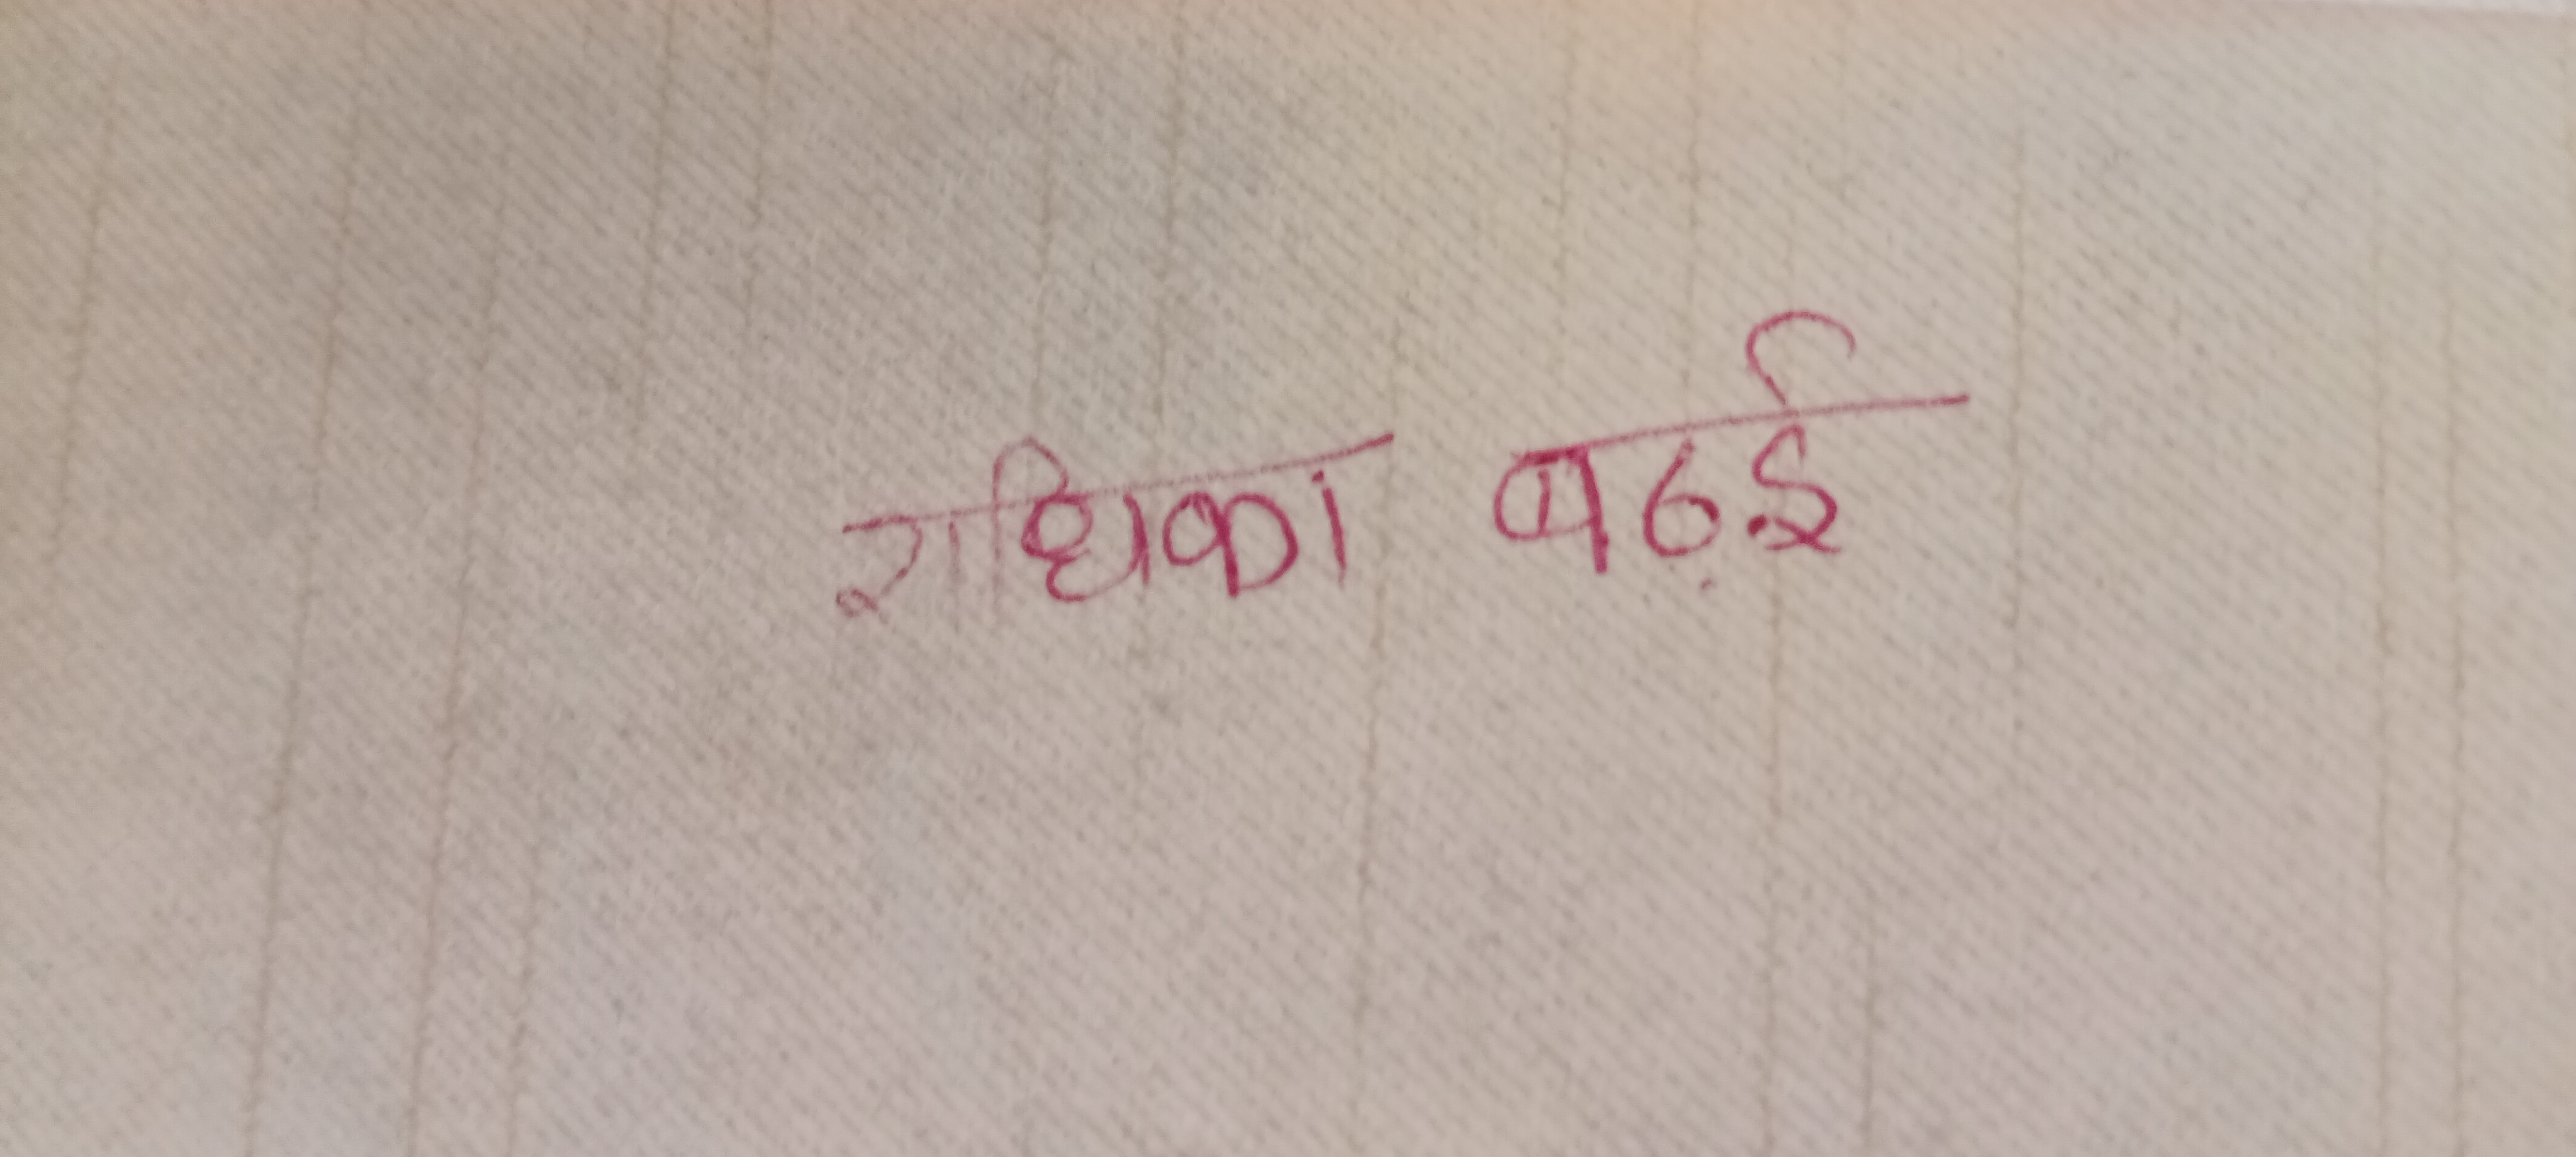 राधिका बढ़ई